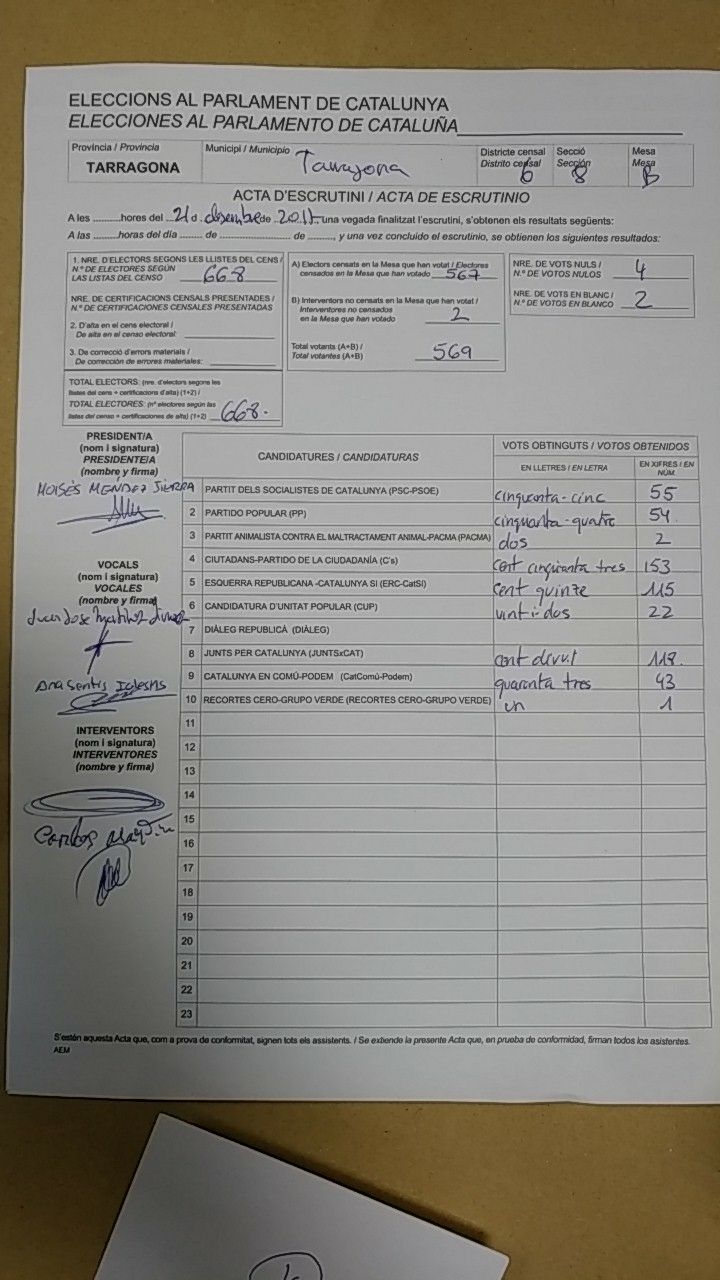 ELECCIONS AL PARLAMENT DE CATALUNYA
ELECCIONES AL PARLAMENTO DE CATALUÑA
Província / Provincia
TARRAGONA
Municipi / Municipio
Tarragona
Districte censal
Distrito censal
6
Secció
Sección
8
Mesa
Mesa
B
ACTA D'ESCRUTINI / ACTA DE ESCRUTINIO
A les ..........hores del 21 d. desembre de 2017 una vegada finalitzat l'escrutini, s'obtenen els resultats següents:
A las ..........horas del día ........ de ......................... de ........., y una vez concluido el escrutinio, se obtienen los siguientes resultados:
1. NRE. D'ELECTORS SEGONS LES LLISTES DEL CENS /
N.º DE ELECTORES SEGÚN
LAS LISTAS DEL CENSO 668
NRE. DE CERTIFICACIONS CENSALS PRESENTADES /
N.º DE CERTIFICACIONES CENSALES PRESENTADAS
2. D'alta en el cens electoral /
De alta en el censo electoral:
3. De correcció d'errors materials /
De corrección de errores materiales:
TOTAL ELECTORS: (nre. d'electors segons les
llistes del cens + certificacions d'alta) (1+2) /
TOTAL ELECTORES: (nº electores según las
listas del censo + certificaciones de alta) (1+2) 668.
A) Electors censats en la Mesa que han votat / Electores
censados en la Mesa que han votado 567
B) Interventors no censats en la Mesa que han votat /
Interventores no censados
en la Mesa que han votado 2
Total votants (A+B) /
Total votantes (A+B) 569
NRE. DE VOTS NULS /
N.º DE VOTOS NULOS 4
NRE. DE VOTS EN BLANC /
N.º DE VOTOS EN BLANCO 2
PRESIDENT/A
(nom i signatura)
PRESIDENTE/A
(nombre y firma)
MOISÉS MENDEZ SIERRA
VOCALS
(nom i signatura)
VOCALES
(nombre y firma)
Juan Jose Martinez
Ana Sentis Iglesias
INTERVENTORS
(nom i signatura)
INTERVENTORES
(nombre y firma)
Carlos
CANDIDATURES / CANDIDATURAS
VOTS OBTINGUTS / VOTOS OBTENIDOS
EN LLETRES / EN LETRA
EN XIFRES / EN NÚM.
1 PARTIT DELS SOCIALISTES DE CATALUNYA (PSC-PSOE) cinquanta-cinc 55
2 PARTIDO POPULAR (PP) cinquanta-quatre 54.
3 PARTIT ANIMALISTA CONTRA EL MALTRACTAMENT ANIMAL-PACMA (PACMA) dos 2
4 CIUTADANS-PARTIDO DE LA CIUDADANÍA (C's) cent cinquanta tres 153
5 ESQUERRA REPUBLICANA -CATALUNYA SÍ (ERC-CatSí) cent quinze 115
6 CANDIDATURA D'UNITAT POPULAR (CUP) vint-i-dos 22
7 DIÀLEG REPUBLICÀ (DIÀLEG)
8 JUNTS PER CATALUNYA (JUNTSxCAT) cent divuit 118.
9 CATALUNYA EN COMÚ-PODEM (CatComú-Podem) quaranta tres 43
10 RECORTES CERO-GRUPO VERDE (RECORTES CERO-GRUPO VERDE) un 1
11
12
13
14
15
16
17
18
19
20
21
22
23
S'estén aquesta Acta que, com a prova de conformitat, signen tots els assistents. / Se extiende la presente Acta que, en prueba de conformidad, firman todos los asistentes.
AEM